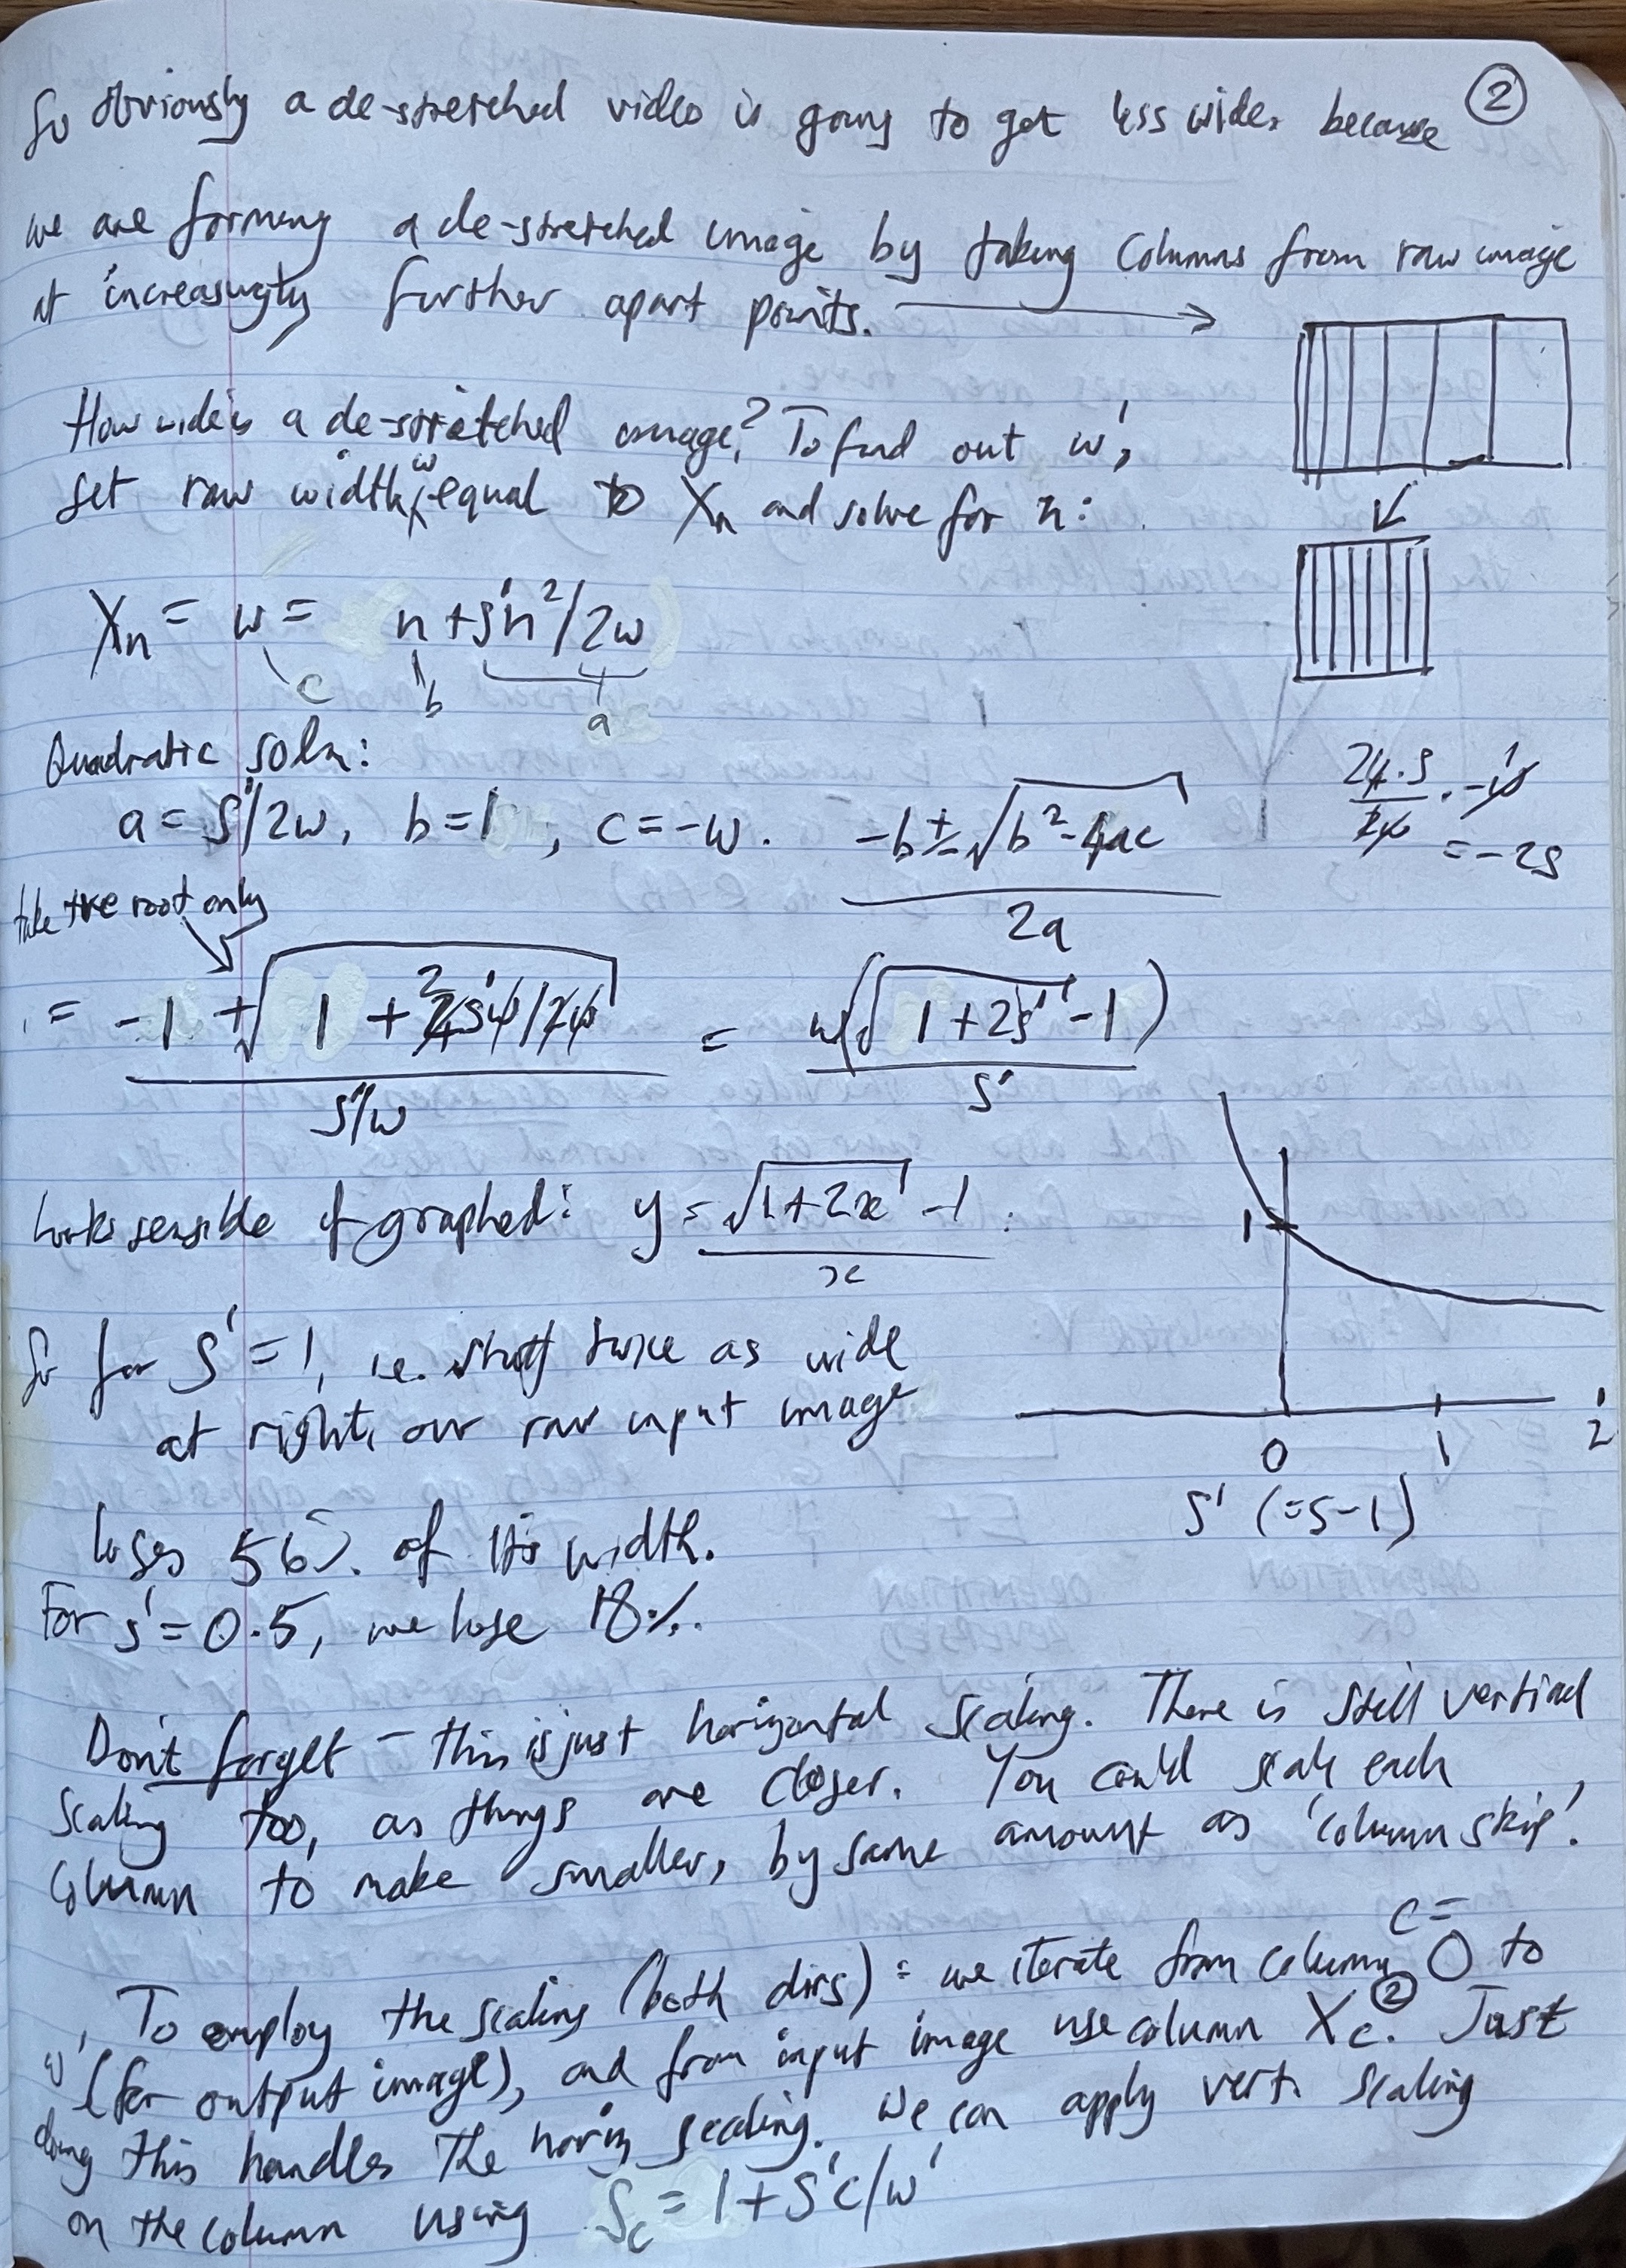 ②
So obviously a de-stretched video is going to get less wide, because
we are forming a de-stretched image by taking columns from raw image
at increasingly further apart points. →
How wide is a de-stretched image? To find out w',
set raw width w equal to Xn and solve for n:
Xn = w = n + s'n²/2w
c b a
Quadratic soln:
a = s'/2w, b = 1, c = -w. (-b ± √(b² - 4ac)) / 2a
24.s/2w . -w = -2s
take +ve root only
= (-1 + √(1 + 2 4s'w/2w)) / (s'/w) = w(√(1+2s') - 1) / s'
Looks sensible if graphed: y = (√(1+2x) - 1) / x :
1
0 1 2
s' (=s-1)
So for s' = 1, i.e. stuff twice as wide
at right, our raw input image
loses 56% of its width.
For s' = 0.5, we lose 18%.
Don't forget - this is just horizontal scaling. There is still vertical
scaling too, as things are closer. You could scale each
column to make smaller, by same amount as 'column skip'.
To employ the scaling (both dirs): we iterate from column c = 0 to
w' (for output image), and from input image use column Xc. ② Just
doing this handles the horiz scaling. We can apply vert. scaling
on the column using Sc = 1 + s'c/w'